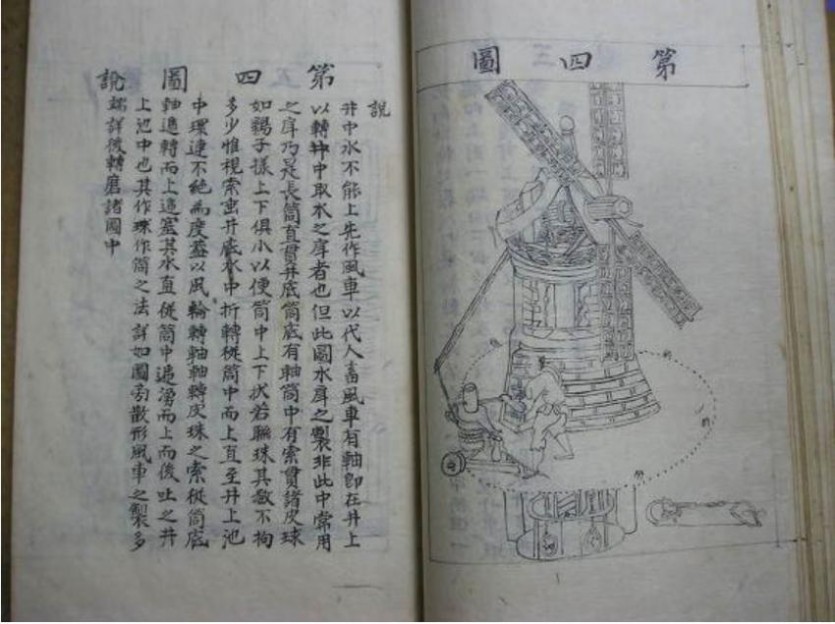 第四圖
第四圖說
說
井中水不能上先作風車以代人畜風車有軸卽在井上
以轉井中取水之戽者也但此圖水戽之製非此中常用
之戽乃是長筒直貫井底筒底有軸筒中有索貫諸皮球
如鷄子樣上下俱小以便筒中上下狀若聯珠其數不拘
多少惟視索出井底水中折轉從筒中而上直至井上池
中環連不絕為度蓋以風輪轉軸軸轉皮珠之索從筒底
軸邊轉而上逼塞其水直從筒中逼湧而上而後吐之井
上池中也其作珠作筒之法詳如圖旁散形風車之製多
端詳後轉磨諸圖中